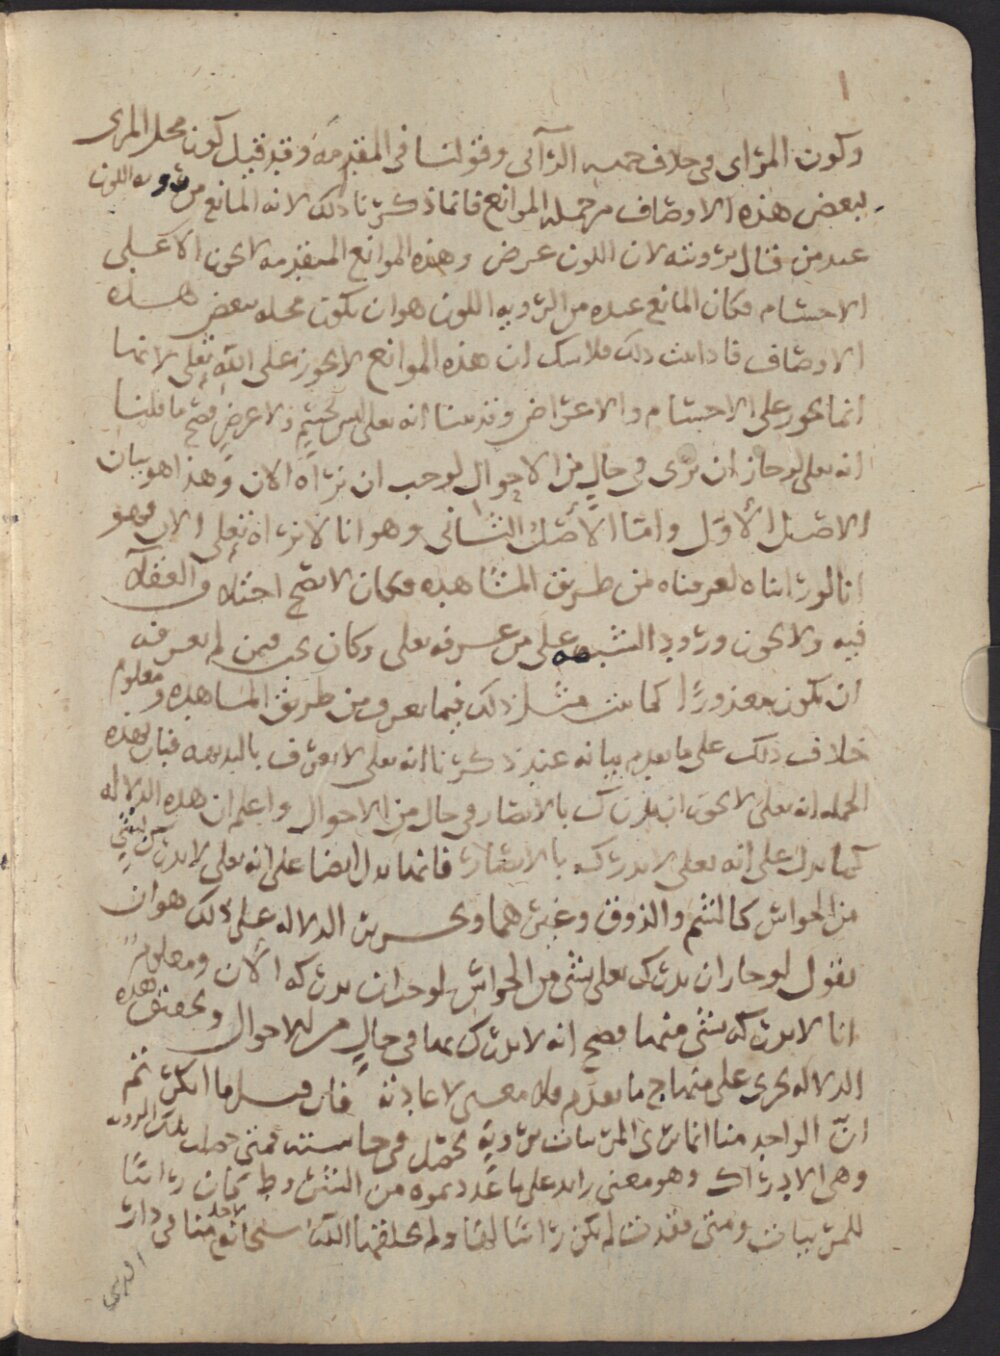 وكون المرأى فى خلاف جهه الرآئى وقولنا فى المقدمه وقد قيل كون محل المرى
ببعض هذه الاوصاف من جمله الموانع فانما ذكرنا ذلك لانه المانع من رويه اللون
عند من قال برويته لان اللون عرض وهذه الموانع المتقدمه لا تجوز الا على
الاجسام فكان المانع عنده من الرويه اللون هو ان يكون محله ببعض هذه
الاوصاف فاذا ثبت ذلك فلا شك ان هذه الموانع لا تجوز على الله تعلى لانها
انما تجوز على الاجسام والاعراض وقد بينا انه تعلى ليس بجسم ولا عرض فصح ما قلنا
انه تعلى لو جاز ان يرى فى حال من الاحوال لوجب ان نراه الان وهذا هو بيان
الاصل الأول وامّا الأصل الثانى وهو انا لا نراه تعلى الان فهو
انا لو رايناه لعرفناه من طريق المشاهده فكان لا يصح اختلاف العقلآ
فيه ولا يجوز ورود الشبهه على من عرفه تعلى وكان يجب فيمن لم يعرفه
ان يكون معذورًا كما يثبت مثل ذلك فيما يعرف من طريق المشاهده ومعلوم
خلاف ذلك على ما تقدم بيانه عند ذكرنا انه تعلى لا يعرف بالبديهه فبان بهذه
الجمله انه تعلى لا يجوز ان يدرك بالابصار فى حال من الاحوال واعلم ان هذه الدلاله
كما تدل على انه تعلى لا يدرك بالابصار فانها تدل ايضا على انه تعلى لا يدرك بشئ
من الحواس كالشم والذوق وغيرهما وتحرير الدلاله على ذلك هو ان
نقول لو جاز ان يدرك تعلى بشئ من الحواس لوجب ان ندركه الأن ومعلوم
انا لا ندركه بشئ منها فصح انه لا يدرك بها فى حال من الاحوال وتحقيق هذه
الدلاله يجرى على منهاج ما تقدم فلا معنى لاعادته فان قيل ما انكرتم
انّ الواحد منا انما يرى المرئيات برويه تحصل فى حاسته فمتى حصلت تلك الرويه
وهى الادراك وهو معنى زايد على ما عددتموه من الشروط كان رائيًا
للمرئيات ومتى فقدت لم يكن رائيًا لها ولم يخلقها الله سبحانه لاحد منا فى دار